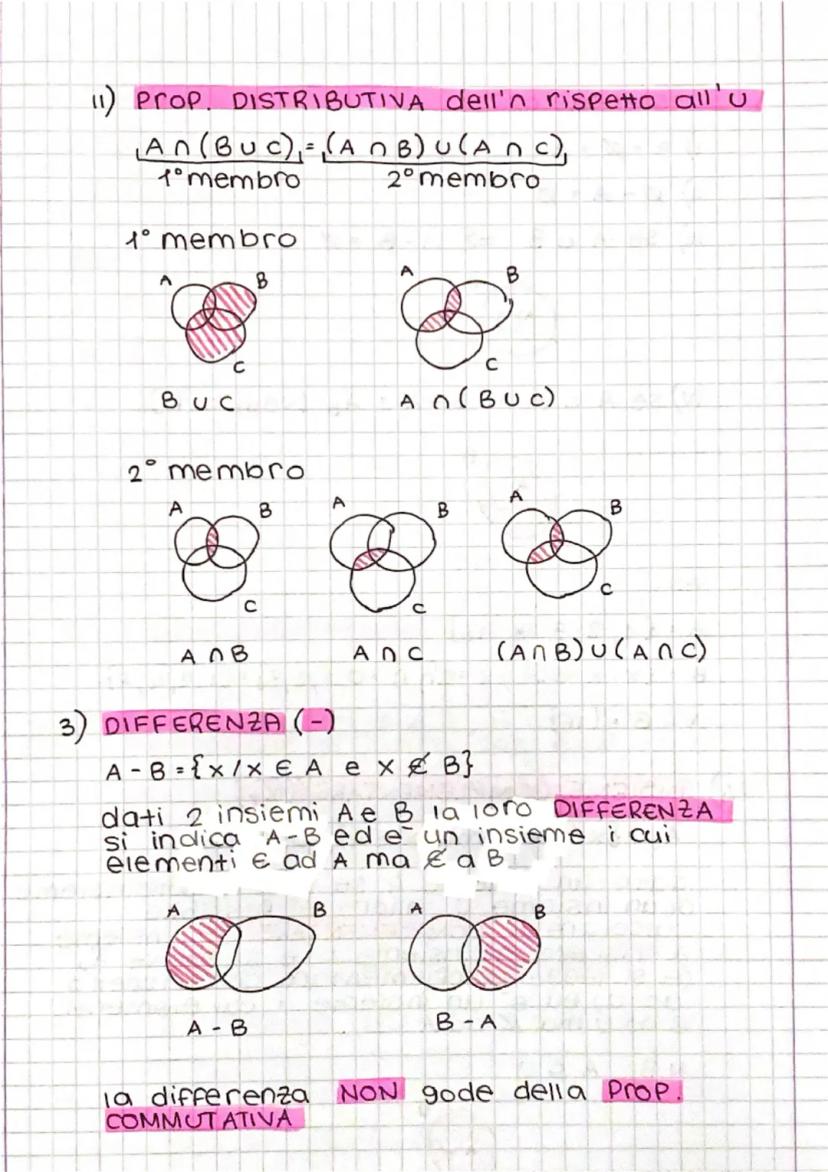 11) PROP. DISTRIBUTIVA dell'∩ rispetto all'∪
A∩(B∪C) = (A∩B)∪(A∩C)
1° membro 2° membro
1° membro
A B A B
C C
B∪C A∩(B∪C)
2° membro
A B A B A B
C C C
A∩B A∩C (A∩B)∪(A∩C)
3) DIFFERENZA (-)
A-B={x/x ∈ A e x ∉ B}
dati 2 insiemi A e B la loro DIFFERENZA
si indica A-B ed è un insieme i cui
elementi ∈ ad A ma ∉ a B
A B A B
A-B B-A
la differenza NON gode della PROP.
COMMUTATIVA